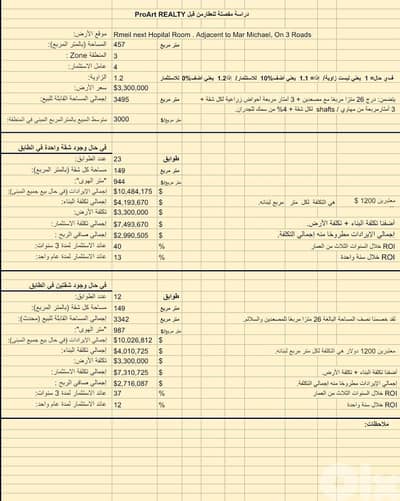 دراسة مفصلة للعقار من قبل ProArt REALTY
موقع الأرض: Rmeil next Hopital Room . Adjacent to Mar Michael, On 3 Roads
المساحة (بالمتر المربع): 457 متر مربع
المنطقة Zone : 3
عامل الاستثمار: 4
الزاوية: 1.2 في حال= 1 يعني ليست زاوية/ إذا= 1.1 يعني اضف 10% للاستثمار/ إذا 1.2 يعني اضف 0% للاستثمار
سعر الأرض: $3,300,000
إجمالي المساحة القابلة للبيع: 3495 متر مربع يتضمن: درج 26 مترًا مربعًا مع مصعدين + 3 أمتار مربعة أحواض زراعية لكل شقة +
3 أمتار مربعة من مهاوي / shafts لكل شقة + 4% من سمك للجدران.
متوسط المبيع بالمتر المربع المبنى في المنطقة: 3000 متر مربع/$
في حال وجود شقة واحدة في الطابق
عدد الطوابق: 23 طوابق
مساحة كل شقة (بالمتر المربع): 149 متر مربع
"متر الهوى": 944 متر مربع/$
إجمالي الإيرادات (في حال بيع جميع المبنى): $10,484,175 $
إجمالي تكلفة البناء: $4,193,670 $ معتبرين 1200 $ هي التكلفة لكل متر مربع لبنائه.
تكلفة الأرض: $3,300,000 $
إجمالي تكلفة الاستثمار: $7,493,670 $ أضفنا تكلفة البناء + تكلفة الأرض.
إجمالي صافي الربح : $2,990,505 $ إجمالي الإيرادات مطروحًا منه إجمالي التكلفة.
عائد الاستثمار لمدة 3 سنوات: 40 % ROI خلال السنوات الثلاث من العمار
عائد الاستثمار لمدة عام واحد: 13 % ROI خلال سنة واحدة
في حال وجود شقتين في الطابق
عدد الطوابق: 12 طوابق
مساحة كل شقة (بالمتر المربع): 149 متر مربع
إجمالي المساحة القابلة للبيع (محدث): 3342 متر مربع لقد خصمنا نصف المساحة البالغة 26 مترًا مربعًا للمصعدين والسلالم.
"متر الهوى": 987 متر مربع/$
إجمالي الإيرادات (في حال بيع جميع المبنى): $10,026,812 $
إجمالي تكلفة البناء: $4,010,725 $ معتبرين 1200 دولار هي التكلفة لكل متر مربع لبنائه.
تكلفة الأرض: $3,300,000 $
إجمالي تكلفة الاستثمار: $7,310,725 $ أضفنا تكلفة البناء + تكلفة الأرض.
إجمالي صافي الربح : $2,716,087 $ إجمالي الإيرادات مطروحًا منه إجمالي التكلفة.
عائد الاستثمار لمدة 3 سنوات: 37 % ROI خلال السنوات الثلاث من العمار
عائد الاستثمار لمدة عام واحد: 12 % ROI خلال سنة واحدة
ملاحظات: